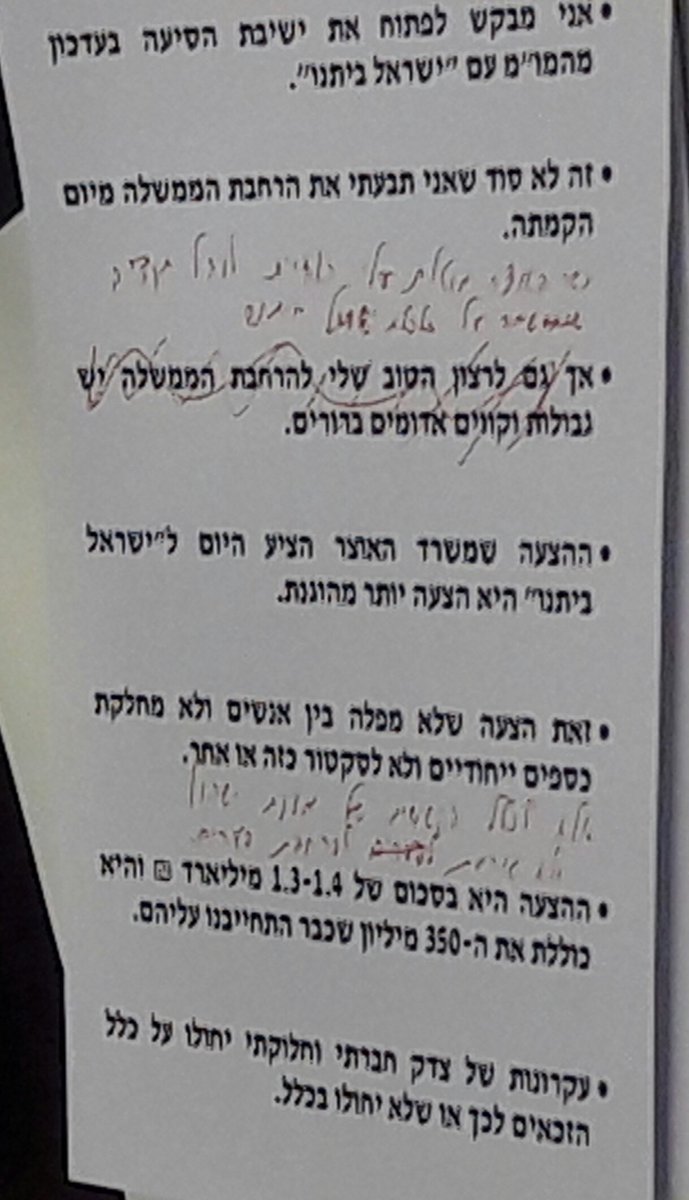 • אני מבקש לפתוח את ישיבת הסיעה בעדכון
מהמו״מ עם ״ישראל ביתנו״.
• זה לא סוד שאני תבעתי את הרחבת הממשלה מיום
הקמתה.
• אך גם לרצון הטוב שלי להרחבת הממשלה יש
גבולות וקווים אדומים ברורים.
• ההצעה שמשרד האוצר הציע היום ל״ישראל
ביתנו״ היא הצעה יותר מהוגנת.
• זאת הצעה שלא מפלה בין אנשים ולא מחלקת
כספים ייחודיים ולא לסקטור כזה או אחר.
• ההצעה היא בסכום של 1.3-1.4 מיליארד ₪ והיא
כוללת את ה-350 מיליון שכבר התחייבנו עליהם.
• עקרונות של צדק חברתי וחלוקתי יחולו על כלל
הזכאים לכך או שלא יחולו בכלל.